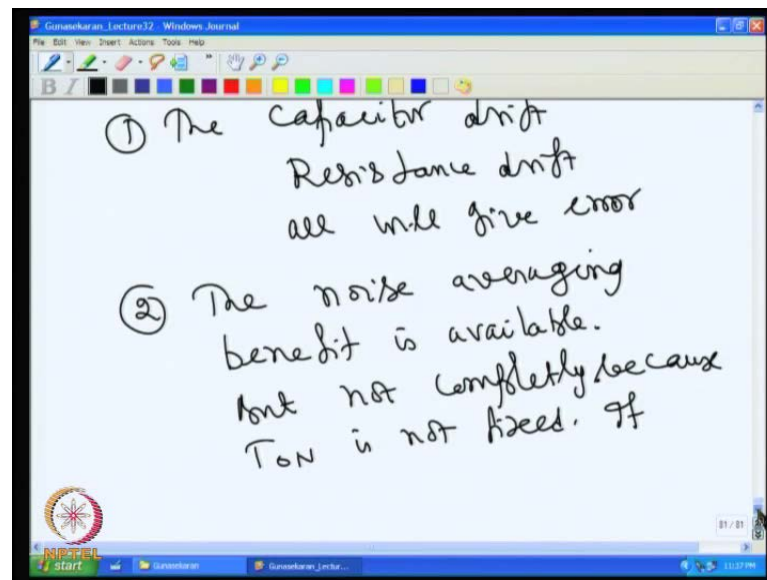 Gunasekaran_Lecture32 - Windows Journal
File Edit View Insert Actions Tools Help
B I
① The capacitor drift
Resistance drift
all will give error
② The noise averaging
benefit is available.
but not completly because
TON is not fixed. If
81 / 81
NPTEL
start Gunasekaran Gunasekaran_Lectur... 11:37 PM